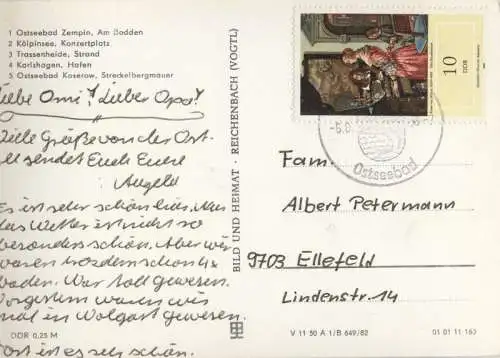 1 Ostseebad Zempin, Am Bodden
2 Kölpinsee, Konzertplatz
3 Trassenheide, Strand
4 Karlshagen, Hafen
5 Ostseebad Koserow, Streckelbergmauer
Liebe Omi! Lieber Opa!
Viele Grüße von der Ost-
sendet Euch Eure
Angela
Es ist sehr schön hier. Aber
das Wetter ist nicht so
besonders schön. Aber wir
waren trotzdem schon 4x
baden. War toll gewesen.
Vorgestern waren wir
mal in Wolgast gewesen.
Dort ist es seh schön.
DDR 0,25 M
BILD UND HEIMAT · REICHENBACH (VOGTL)
10
DDR
Ostseebad
Fam.
Albert Petermann
9703 Ellefeld
Lindenstr. 14
V 11 50 A 1/B 649/82
01 01 11 163